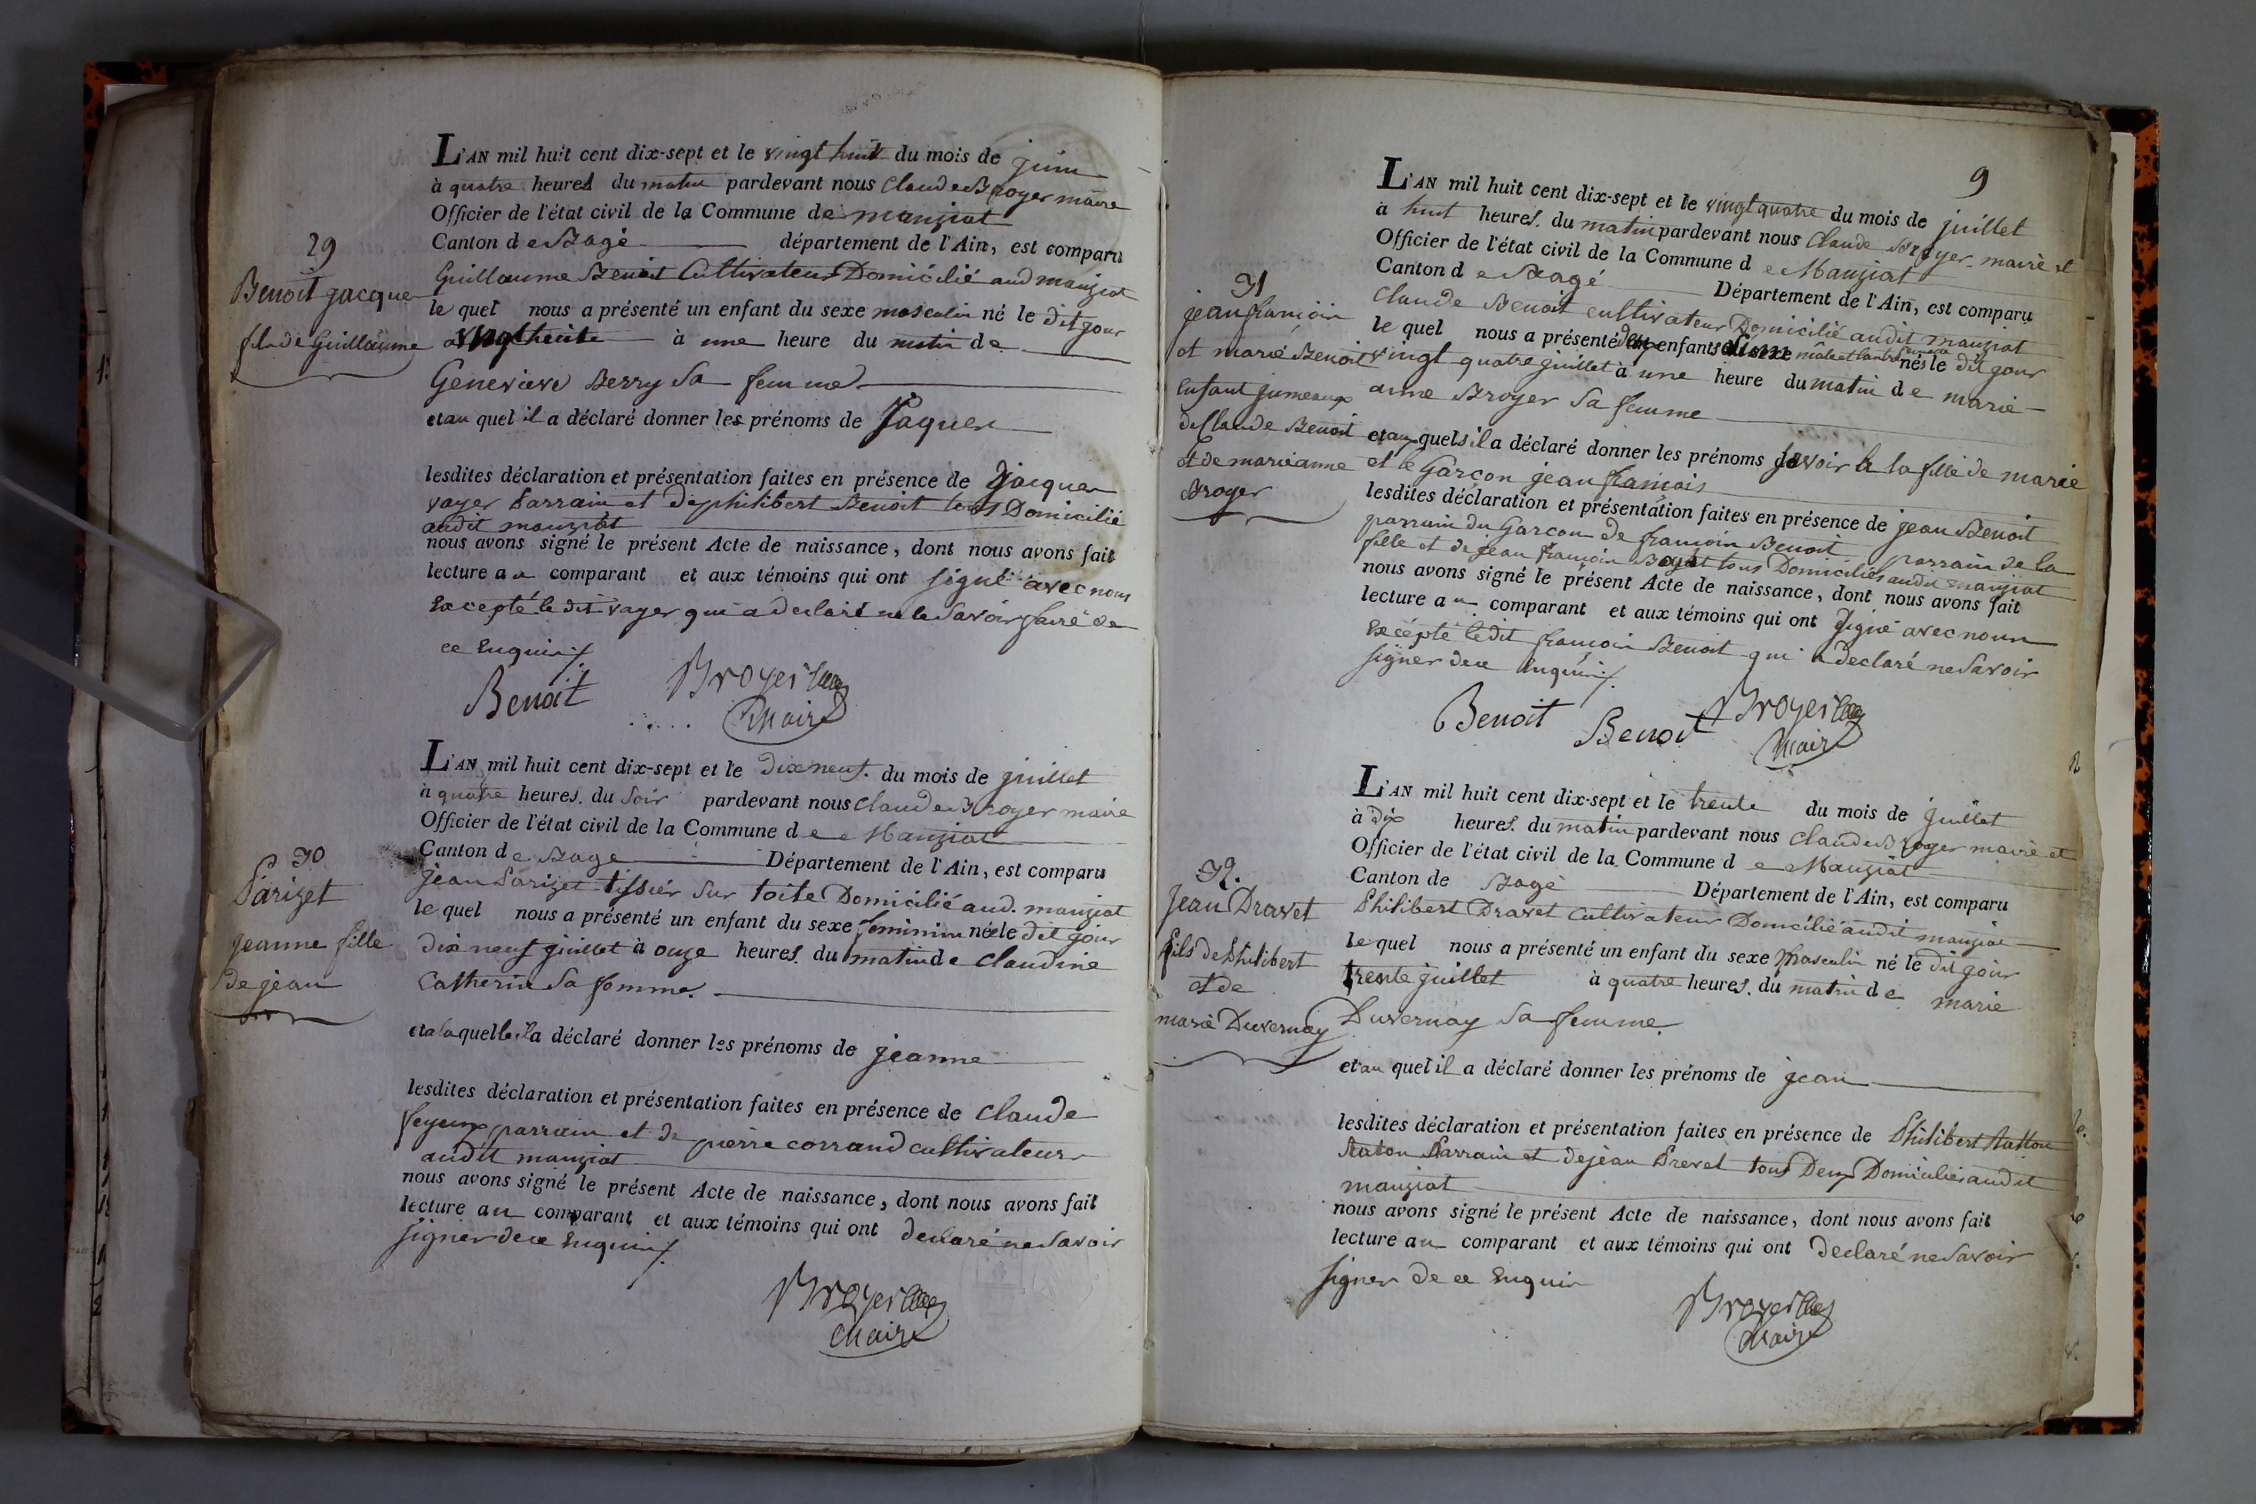 29
Benoit jacque
fils de Guillaume
L'AN mil huit cent dix-sept et le vingt huit du mois de juin
à quatre heures du matin pardevant nous Claude Broyer maire
Officier de l'état civil de la Commune de manziat
Canton de Bagé département de l'Ain, est comparu
Guillaume Benoit Cultivateur Domicilié aud manziat
le quel nous a présenté un enfant du sexe masculin né le dit jour
vingt huit à une heure du matin de
Genevieve Berry sa femme
et au quel il a déclaré donner les prénoms de Jaques
lesdites déclaration et présentation faites en présence de Jacques
voyer Parrain et de philibert Benoit tous Domicilié
audit manziat
nous avons signé le présent Acte de naissance, dont nous avons fait
lecture au comparant et aux témoins qui ont signé avec nous
Excepté le dit vayer qui a declaré ne le savoir faire de
ce Enquis
Benoit Broyer
Maire
30
Parizet
jeanne fille
de jean
L'AN mil huit cent dix-sept et le dix neuf du mois de juillet
à quatre heures du soir pardevant nous claude Broyer maire
Officier de l'état civil de la Commune de Manziat
Canton de Bagé Département de l'Ain, est comparu
jean Parizet tissier sur toile Domicilié aud. manziat
le quel nous a présenté un enfant du sexe feminin née le dit jour
dix neuf juillet à onze heures du matin de claudine
Catherin sa femme
et a laquelle il a déclaré donner les prénoms de jeanne
lesdites déclaration et présentation faites en présence de claude
feyeux parrain et de pierre corrand cultivateurs
audit manziat
nous avons signé le présent Acte de naissance, dont nous avons fait
lecture au comparant et aux témoins qui ont declaré ne savoir
signer de ce Enquis
Broyer
Maire
9
31
jean françois
et marie Benoit
Enfant jumeaux
de Claude Benoit
et de marie anne
Broyer
L'AN mil huit cent dix-sept et le vingt quatre du mois de juillet
à huit heures du matin pardevant nous Claude Broyer maire et
Officier de l'état civil de la Commune de Manziat
Canton de Bagé Département de l'Ain, est comparu
Claude Benoit cultivateur Domicilié audit manziat
le quel nous a présenté deux enfants mâle et l'autre nés le dit jour
vingt quatre juillet à une heure du matin de marie
anne Broyer sa femme
et aux quels il a déclaré donner les prénoms savoir à la fille de marie
et le Garçon jean françois
lesdites déclaration et présentation faites en présence de jean Benoit
parrain du Garcon de françois Benoit parrain de la
fille et de jean françois tous Domiciliés audit manziat
nous avons signé le présent Acte de naissance, dont nous avons fait
lecture au comparant et aux témoins qui ont signé avec nous
Excepté ledit françois Benoit qui a declaré ne savoir
signer de ce Enquis
Benoit Benoit Broyer
Maire
32.
Jean Dravet
fils de Philibert
et de
marie Duvernay
L'AN mil huit cent dix-sept et le trente du mois de juillet
à dix heures du matin pardevant nous Claude Broyer maire et
Officier de l'état civil de la Commune de Manziat
Canton de Bagé Département de l'Ain, est comparu
Philibert Dravet cultivateur Domicilié audit manziat
le quel nous a présenté un enfant du sexe masculin né le dit jour
trente juillet à quatre heures du matin de marie
Duvernay sa femme.
et au quel il a déclaré donner les prénoms de jean
lesdites déclaration et présentation faites en présence de Philibert
Parrain et de jean Prevel tous Deux Domiciliés audit
manziat
nous avons signé le présent Acte de naissance, dont nous avons fait
lecture au comparant et aux témoins qui ont declaré ne savoir
signer de ce Enquis
Broyer
Maire